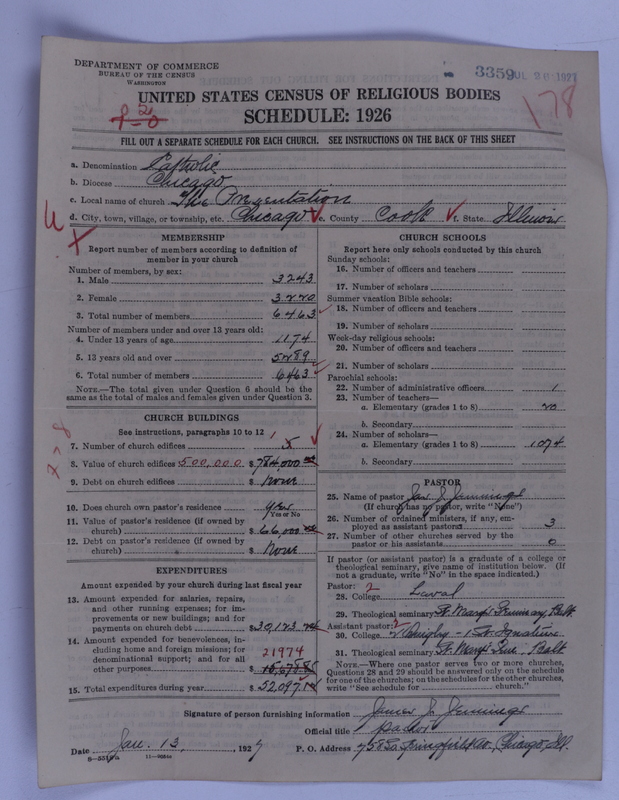 DEPARTMENT OF COMMERCE
BUREAU OF THE CENSUS
WASHINGTON
3359 JUL 26 1927
178
UNITED STATES CENSUS OF RELIGIOUS BODIES
SCHEDULE: 1926
FILL OUT A SEPARATE SCHEDULE FOR EACH CHURCH. SEE INSTRUCTIONS ON THE BACK OF THIS SHEET
a. Denomination Catholic
b. Diocese Chicago
c. Local name of church The Presentation
d. City, town, village, or township, etc. Chicago e. County Cook f. State Illinois
MEMBERSHIP
Report number of members according to definition of
member in your church
Number of members, by sex:
1. Male 3243
2. Female 3220
3. Total number of members 6463
Number of members under and over 13 years old:
4. Under 13 years of age 1174
5. 13 years old and over 5289
6. Total number of members 6463
NOTE.—The total given under Question 6 should be the
same as the total of males and females given under Question 3.
CHURCH BUILDINGS
See instructions, paragraphs 10 to 12
7. Number of church edifices 1
8. Value of church edifices 500,000 $ 784,000
9. Debt on church edifices $ None
10. Does church own pastor's residence Yes
Yes or No
11. Value of pastor's residence (if owned by
church) $ 66,000
12. Debt on pastor's residence (if owned by
church) $ None
EXPENDITURES
Amount expended by your church during last fiscal year
13. Amount expended for salaries, repairs,
and other running expenses; for im-
provements or new buildings; and for
payments on church debt $ 30,123
14. Amount expended for benevolences, in-
cluding home and foreign missions; for
denominational support; and for all 21974
other purposes $
15. Total expenditures during year $ 52,097
CHURCH SCHOOLS
Report here only schools conducted by this church
Sunday schools:
16. Number of officers and teachers
17. Number of scholars
Summer vacation Bible schools:
18. Number of officers and teachers
19. Number of scholars
Week-day religious schools:
20. Number of officers and teachers
21. Number of scholars
Parochial schools:
22. Number of administrative officers 1
23. Number of teachers—
a. Elementary (grades 1 to 8) 20
b. Secondary
24. Number of scholars—
a. Elementary (grades 1 to 8) 1074
b. Secondary
PASTOR
25. Name of pastor Jas. J. Jennings
(If church has no pastor, write "None")
26. Number of ordained ministers, if any, em-
ployed as assistant pastors 3
27. Number of other churches served by the
pastor or his assistants 0
If pastor (or assistant pastor) is a graduate of a college or
theological seminary, give name of institution below. (If
not a graduate, write "No" in the space indicated.)
Pastor: 2
28. College Laval
29. Theological seminary St. Mary's Seminary, Balt
Assistant pastor: 2
30. College 2 Quigley - 1 St. Ignatius
31. Theological seminary St. Mary's Sem., Balt
NOTE.—Where one pastor serves two or more churches,
Questions 28 and 29 should be answered only on the schedule
for one of the churches; on the schedules for the other churches,
write "See schedule for church."
Signature of person furnishing information James J. Jennings
Official title Pastor
Date Jan. 13, 1927 P. O. Address 758 So. Springfield Av., Chicago, Ill.